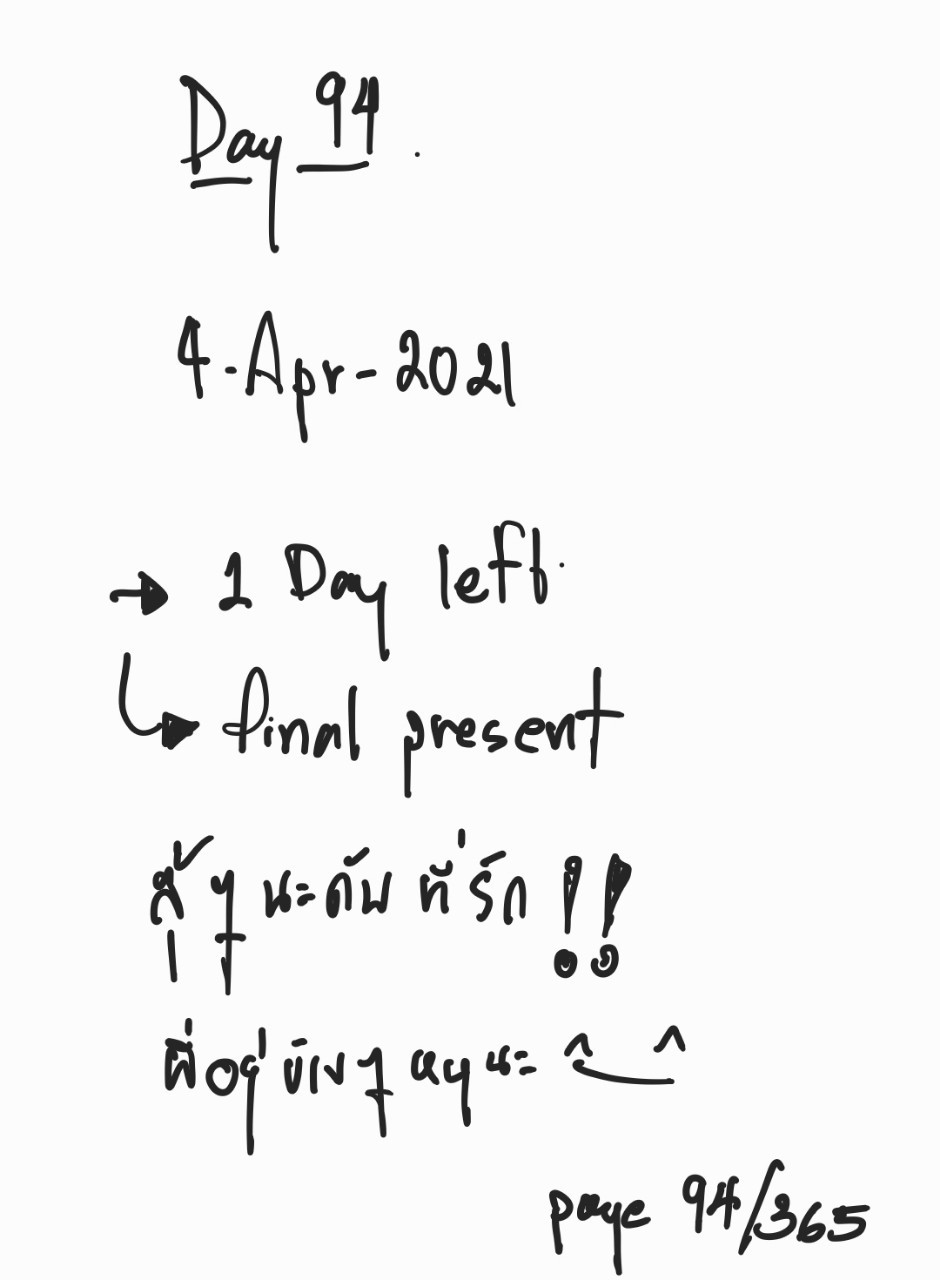 Day 94.
4-Apr-2021
→ 1 Day left.
↳ final present
สู้ ๆ นะคับ ที่รัก !!
พี่อยู่ข้าง ๆ หนูนะ ^‿^
page 94/365